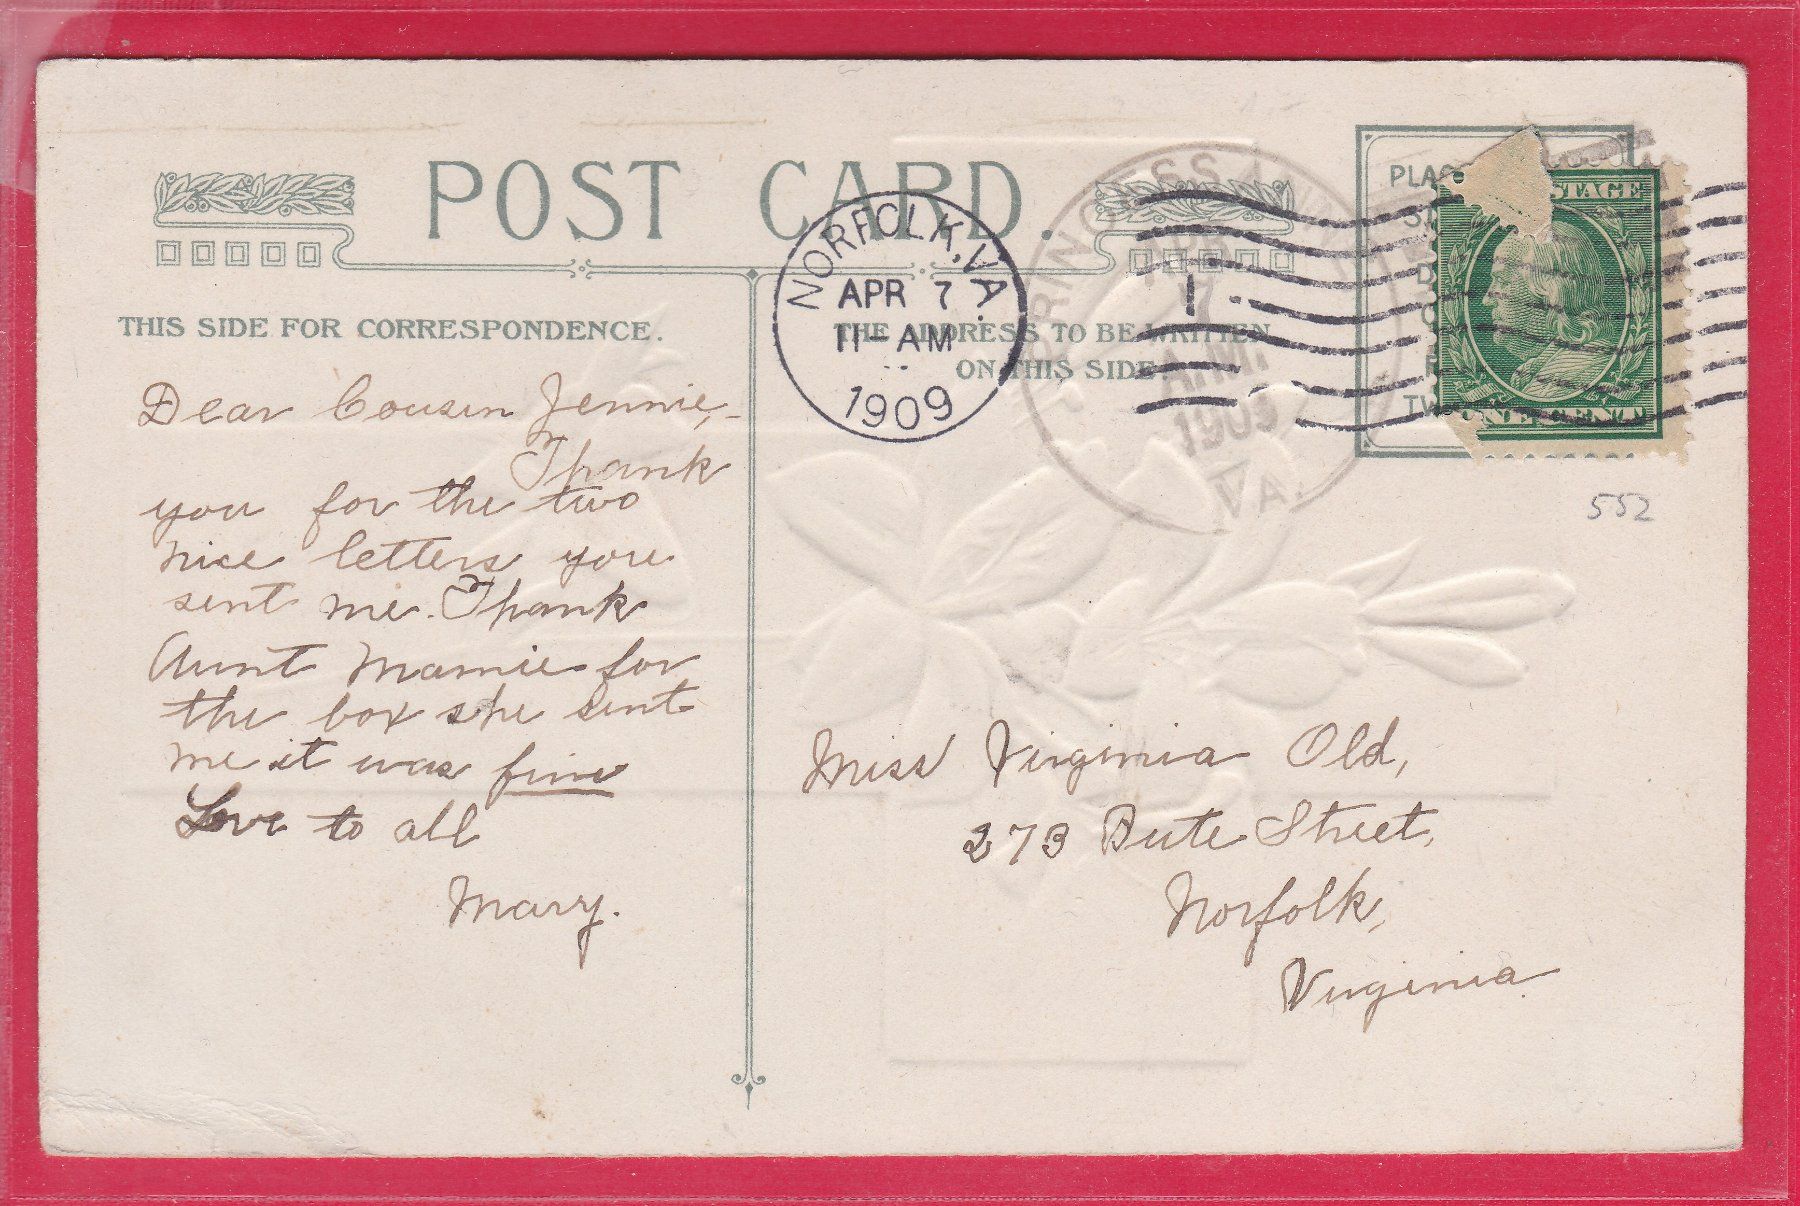 POST CARD.
THIS SIDE FOR CORRESPONDENCE.
THE ADDRESS TO BE WRITTEN
ON THIS SIDE
NORFOLK, VA.
APR 7
11-AM
1909
1
PRINCESS ANNE
APR
7
A.M.
1909
VA.
TAGE
ONE CENT
552
Dear Cousin Jennie,-
Thank
you for the two
nice letters you
sent me. Thank
Aunt Mamie for
the box she sent
me it was fine
Love to all
Mary.
Miss Virginia Old,
273 Bute Street,
Norfolk,
Virginia